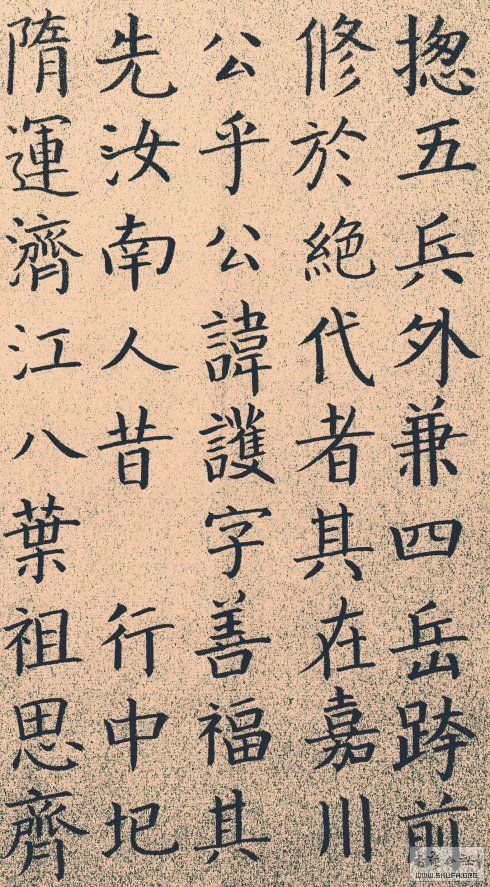 揔五兵外兼四岳跨前
修於絕代者其在嘉川
公乎公諱護字善福其
先汝南人昔 行中圮
隋運濟江八葉祖思齊
WWW.SHUFA.ORG